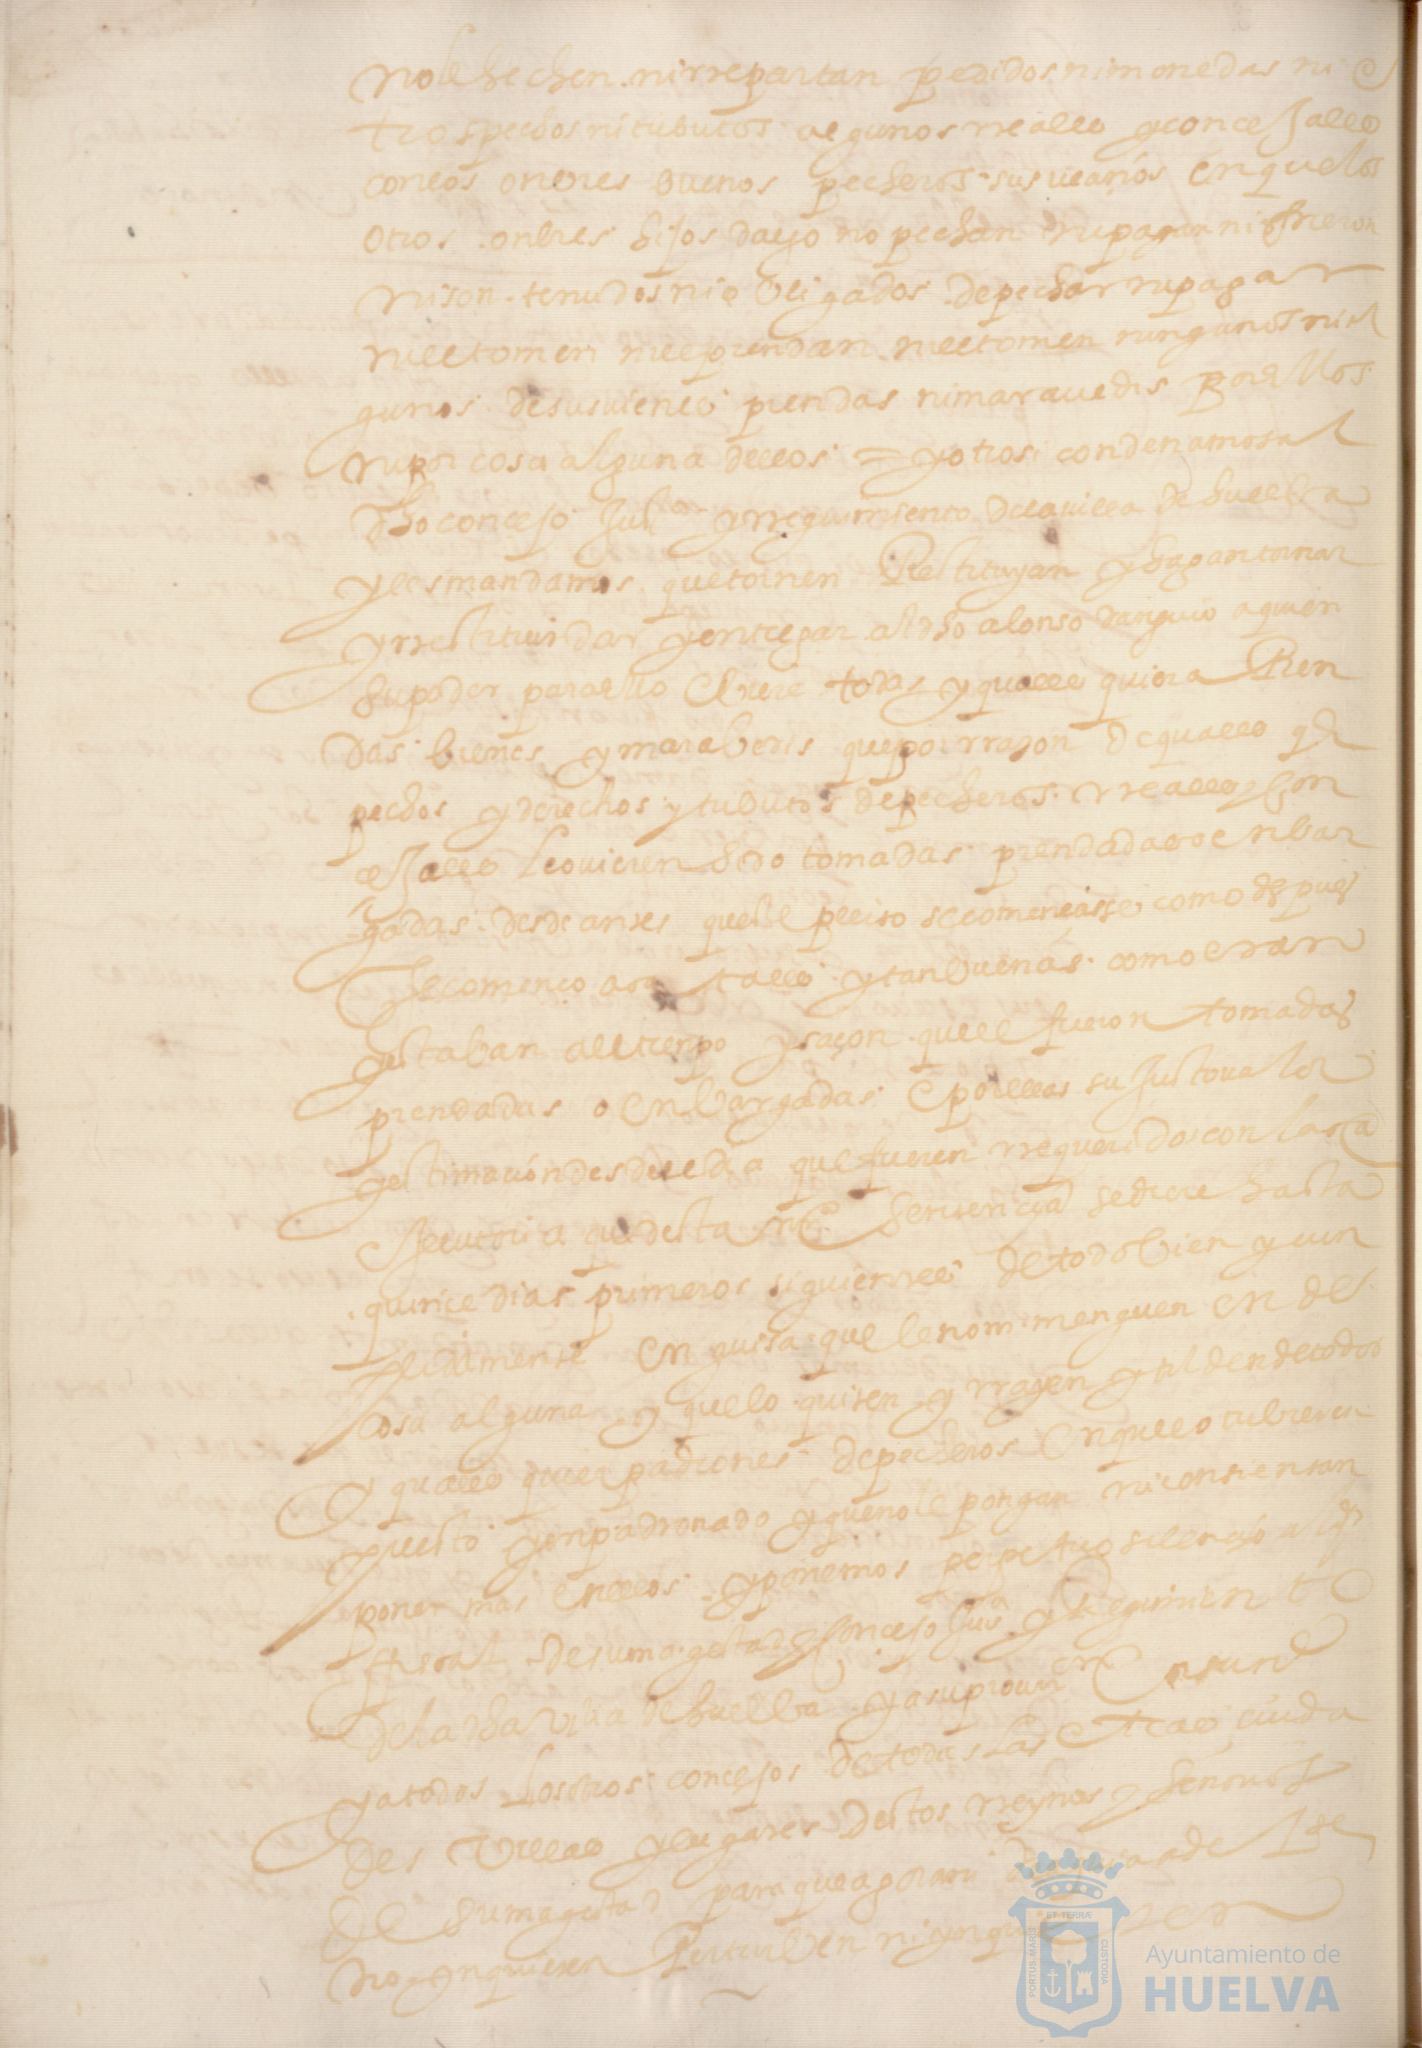 no le hechen ni rrepartan pedidos ni monedas ni o
tros pechos ni tributos algunos rreales y conceJales
con los onbres buenos pecheros sus vezinos en que los
otros onbres hijos dalgo no pechan ni pagan ni fueron
ni son tenudos ni obligados de pechar ni pagar
ni le tomen ni le prendan ni le tomen ningunos ni al
gunos de sus vienes prendas ni maravedis por ellos
ni por cosa alguna dellos = y otrosi condenamos al
dho concejo Jusª y rregimiento de la villa de huelva
y les mandamos que tornen Restituyan y hagan tornar
y rrestituir dar y entregar al dho alonso a quien
su poder para ello obiere todas y quales quiera Ren
das bienes y maraberis que por rrazon de quales qr
pechos y derechos y tributos de pecheros rreales y con
ceJales le ovieren sido tomadas prendadas o enbar
gadas desde antes quel pleito se comencasse como despues
se començo tales y tan buenas como eran
y estaban al tienpo y saçon que le fueron tomadas
prendadas o enbargadas e por ellas su Justo valor
y estimacion desde el dia que fueren rrequeridos con la ca
executoria que desta nrª sentencia se diere hasta
quinze dias primeros siguientes de todo bien y cun
plidamente en guisa que le non menguen en de
cosa alguna y que lo quiten y rrayen y tilden de todos
y quales quier padrones de pecheros en que lo tubieren
puesto y enpadronado y que no le pongan ni consientan
poner mas en ellos y ponemos perpetuo silencio al dho
fiscal de su magestad y concejo Jusª y Regimiento
de la dha villa de huelba y a su procur en su nre
y a todos los otros concejos de todas las otras ciuda
des villas y lugares destos rreynos y señorios
de su magestad para que agora ni de aqui adelante
no ynquieten Perturben ni ynquietar
Ayuntamiento de
HUELVA
PORTUS MARIS
ET TERRÆ
CUSTODIA